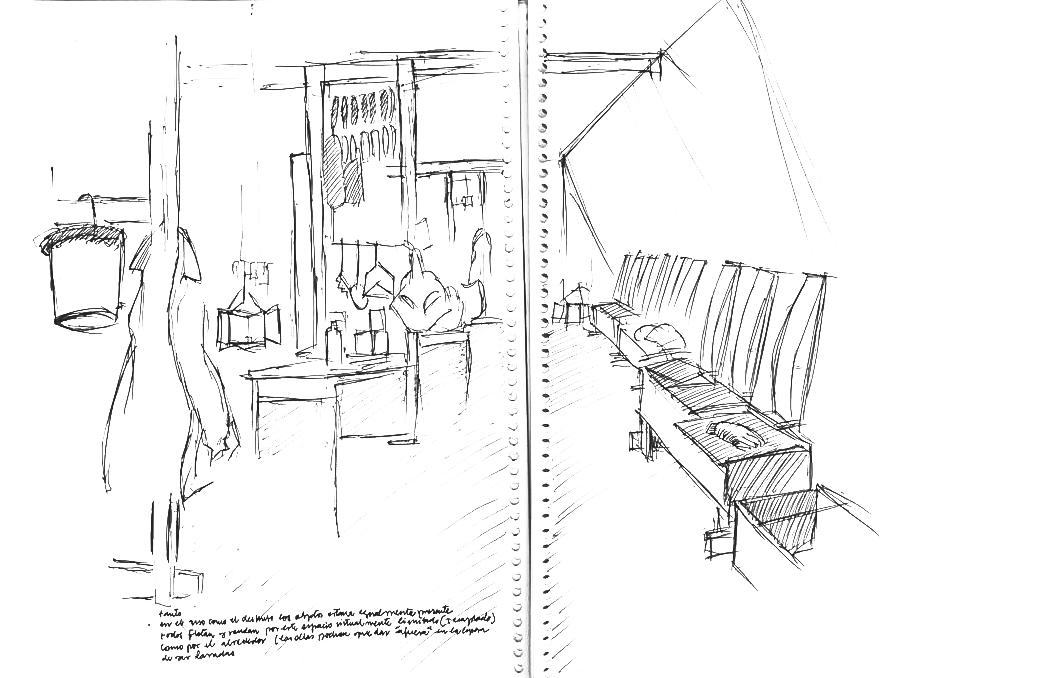 tanto
en el uso como el desuso los objetos estan igualmente presente
todos flotan y rondan por este espacio virtualmente limitado (+ acoplado)
como por el alrededor (las ollas podian quedar "afuera" en la espera
de ser lavadas